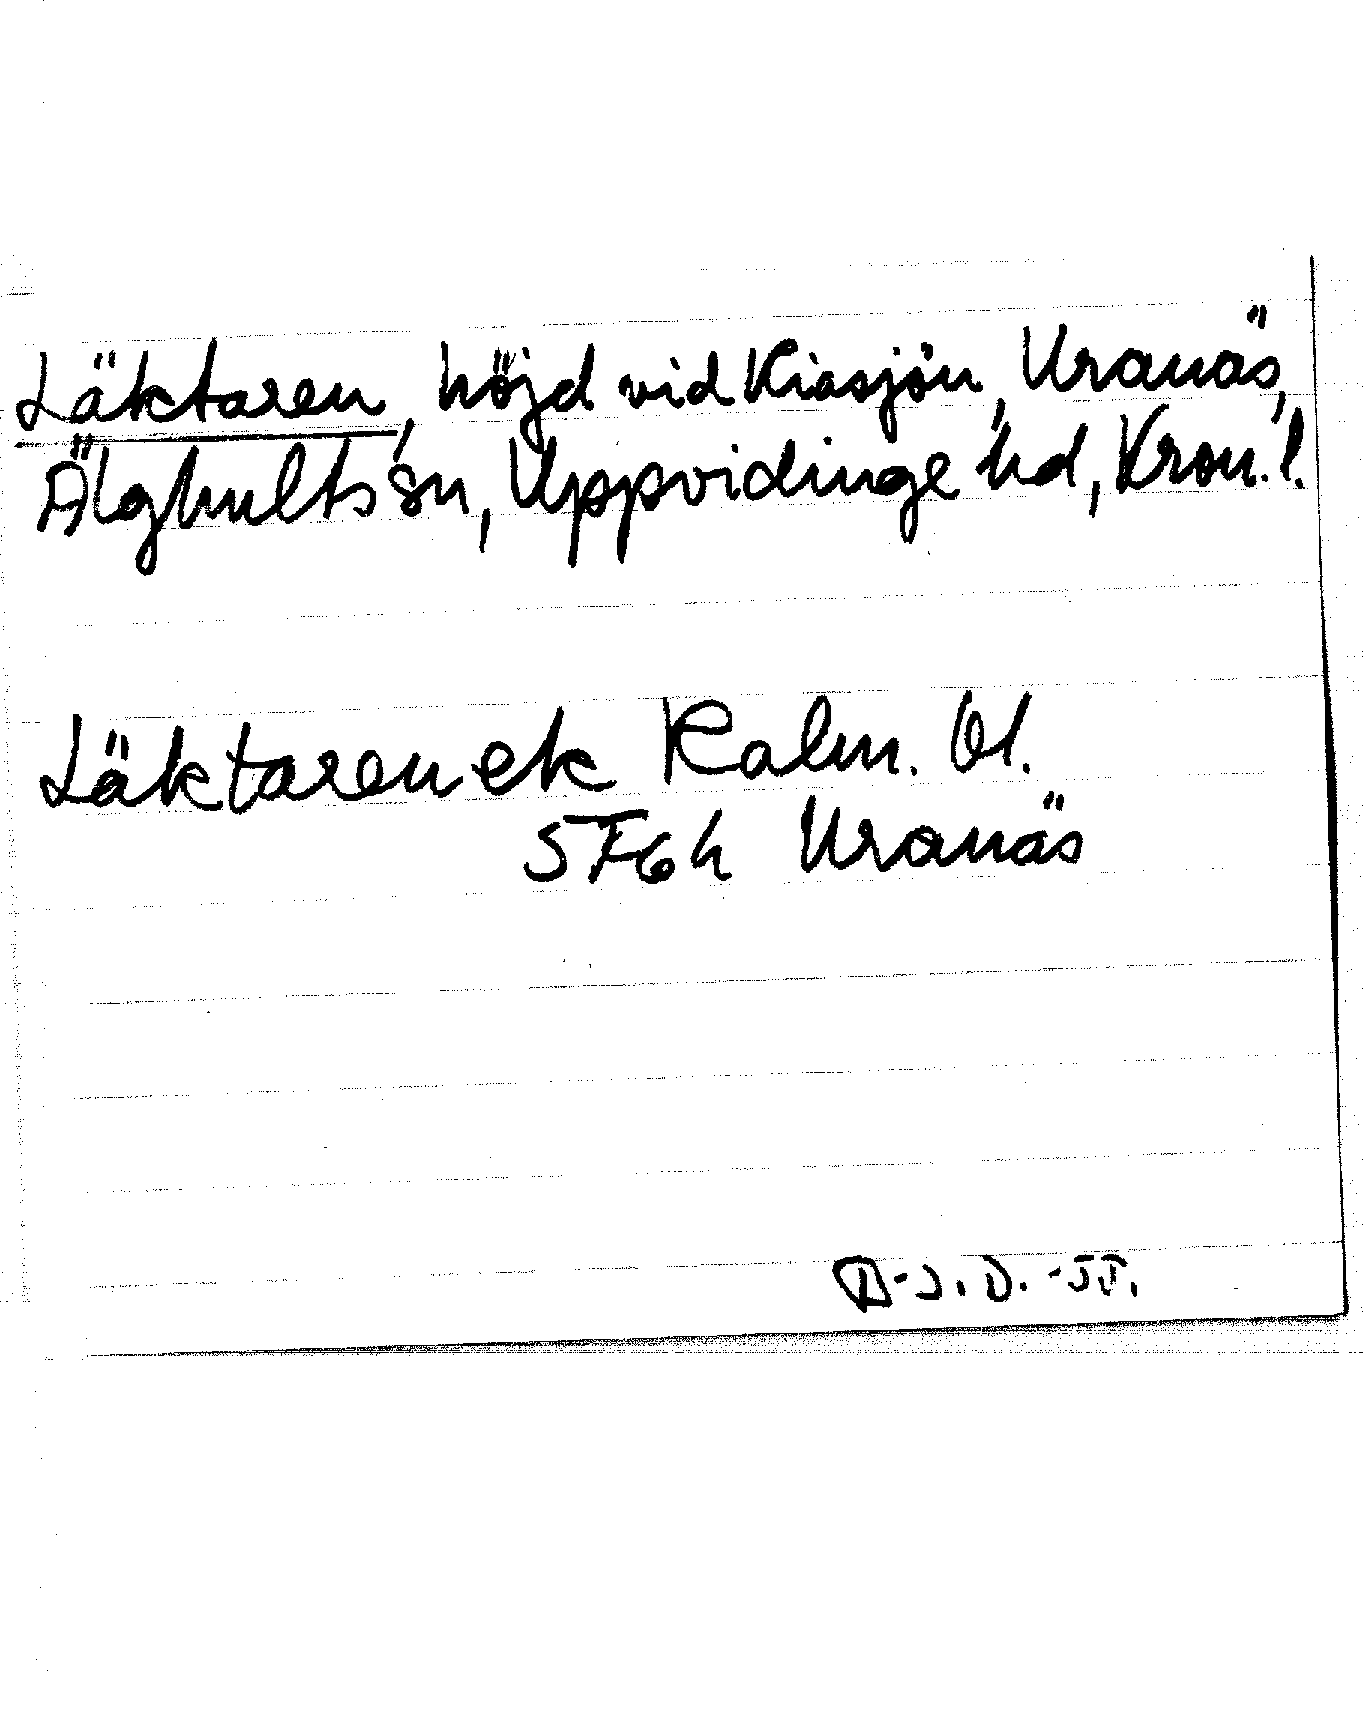 Läktaren, höjd vid Kiasjön, Uranäs,
Älghults sn, Uppvidinge hd, Kron. l.
Läktaren ek Kalm. bl.
5F6h Uranäs